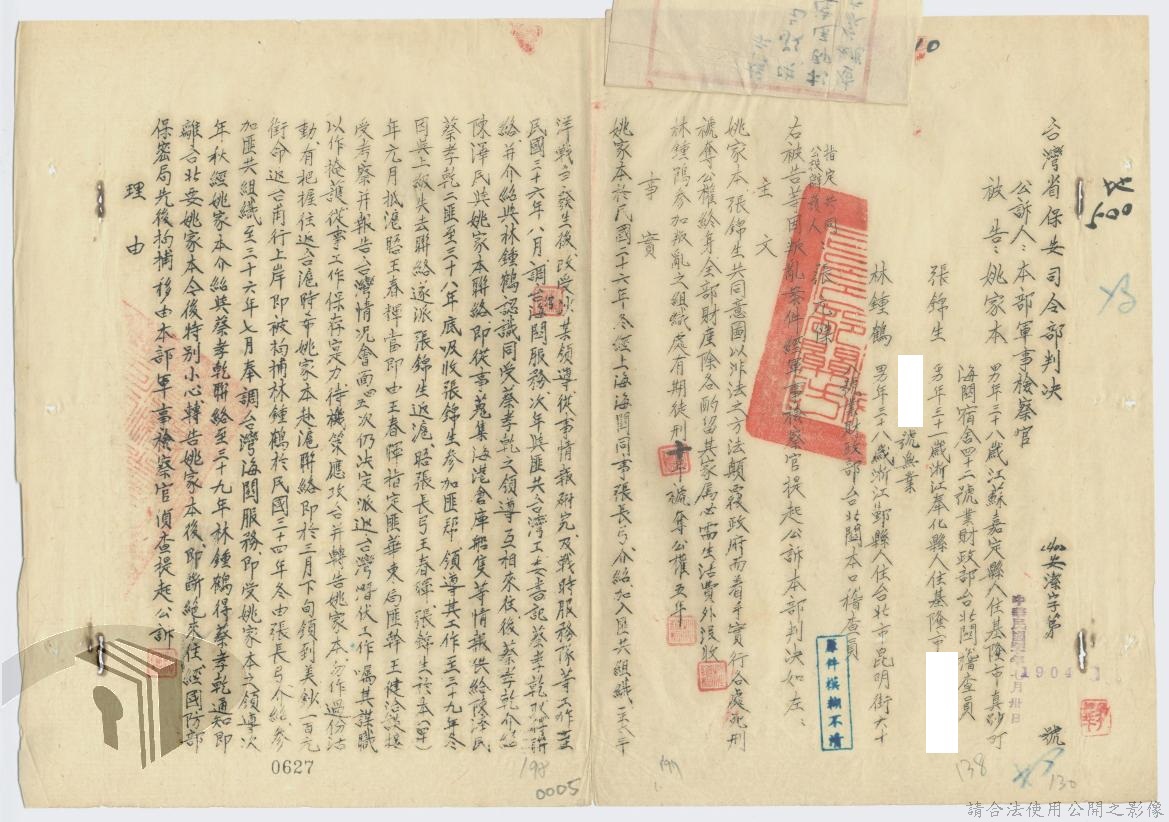 台灣省保安司令部判決
安潔字第 1904 號
公訴人：本部軍事檢察官
被告：姚家本 男年三十八歲江蘇嘉定縣人住基隆市真砂町
海關宿舍四十二號業財政部台北關稽查員
張錦生 男年三十一歲浙江奉化縣人住基隆市
號無業
林鍾鶴 男年三八歲浙江鄞縣人住台北市昆明街六十
號業財政部台北關本口稽查員
指定共同
公設辯護人：張元傑
右被告等因叛亂案件經軍事檢察官提起公訴本部判決如左：
主文
姚家本、張錦生共同意圖以非法之方法顛覆政府而着手實行各處死刑
褫奪公權終身全部財產除各酌留其家屬必需生活費外沒收
林鍾鶴參加叛亂之組織處有期徒刑十年褫奪公權五年
事實
姚家本於民國二十六年冬經上海海關同事張長弓介紹加入匪共組織至太平
洋戰爭發生後改受 某領導從事情報研究及戰時服務隊等工作至
民國三十六年八月調台海關服務次年與匪共台灣工委書記蔡孝乾取得聯
絡并介紹與林鍾鶴認識同受蔡孝乾之領導互相來往後蔡孝乾介紹
陳澤民與姚家本聯絡即從事蒐集海港倉庫船隻等情報供給陳澤民
蔡孝乾二匪至三十八年底吸收張錦生參加匪幫領導其工作至三十九年冬
因與上級失去聯絡遂派張錦生返滬晤張長弓王春暉張錦生於本(四十)
年元月抵滬晤王春暉當即由王春暉指定匪華東局匪幹王健洽談接
受考察并報告台灣情況會面四五次仍決定派返台灣潛伏工作囑其謀職
以作掩護從事工作保存實力待機策應攻台并轉告姚家本勿作過份活
動有把握往返台滬時希姚家本赴滬聯絡即於三月下旬領到美鈔一百元
銜命返台甫行上岸即被拘捕林鍾鶴於民國三十四年冬由張長弓介紹參
加匪共組織至三十六年七月奉調台灣海關服務即受姚家本之領導次
年秋經姚家本介紹與蔡孝乾聯絡至三十九年林鍾鶴得蔡孝乾通知即
離台北要姚家本今後特別小心轉告姚家本後即斷絕來往經國防部
保密局先後拘捕移由本部軍事檢察官偵查提起公訴
理由
原件模糊不清
0627
198
0005
197
138
130
請合法使用公開之影像